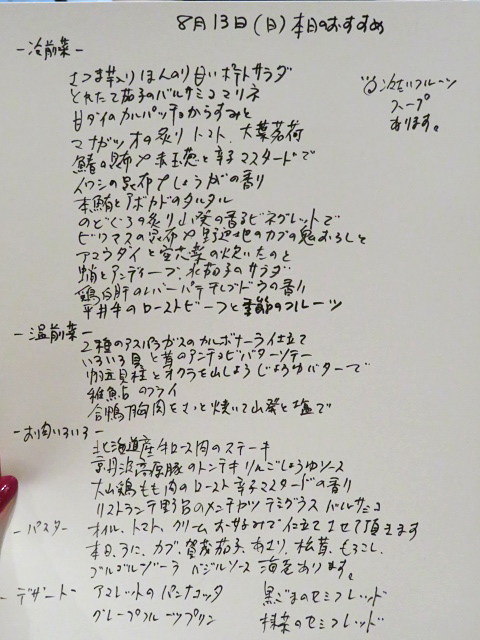 8月13日(日)本日のおすすめ
-冷前菜-
さつま芋入り ほんのり甘いポテトサラダ
とれたて茄子のバルサミコマリネ
甘ダイのカルパッチョ からすみと
マナガツオの炙り トマト、大葉茗荷
鰆の昆布〆 赤玉葱と辛子マスタードで
イワシの昆布〆 しょうがの香り
本鮪とアボカドのタルタル
のどぐろの炙り 山葵の香るビネグレットで
ビワマスの昆布〆 野辺地のカブの鬼おろしと
アマウダイと空芯菜の炊いたのと
蛸とアンディーブ、水茄子のサラダ
鶏白肝のレバーパテ ブドウの香り
平井牛のローストビーフと季節のフルーツ
冷たいフルーツ
スープ
あります。
-温前菜-
2種のアスパラガスのカルボナーラ仕立て
いろいろ貝と茸のアンチョビバターソテー
帆立貝柱とオクラを山しょうじょうゆバターで
稚鮎のフライ
合鴨胸肉をさっと焼いて山葵と塩で
-お肉いろいろ-
北海道産牛ロース肉のステーキ
京丹波高原豚のトンテキ りんごしょうゆソース
大山鶏もも肉のロースト 辛子マスタードの香り
リストランテ野呂のメンチカツ デミグラス バルサミコ
-パスタ- オイル、トマト、クリーム お好みで仕立てさせて頂きます
本日、うに、カブ、賀茂茄子、あさり、松茸、もろこし、
ゴルゴンゾーラ バジルソース 海老あります。
-デザート- アマレットのパンナコッタ 黒ごまのセミフレッド
グレープフルーツプリン 抹茶のセミフレッド